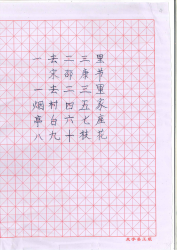 一去二三里
宋 邵康节
一去二三里
烟村四五家
亭台六七座
八九十枝花